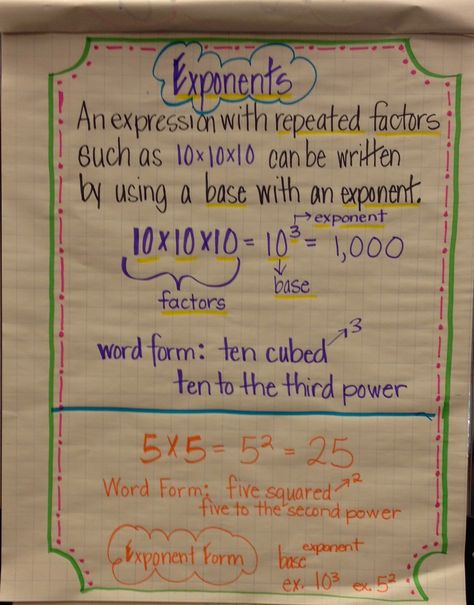 Exponents
An expression with repeated factors
such as 10×10×10 can be written
by using a base with an exponent.
→ exponent
10×10×10 = 10³ = 1,000
base
factors
word form: ten cubed ³
ten to the third power
5×5 = 5² = 25
Word Form: five squared ²
five to the second power
Exponent Form
base exponent
ex. 10³ ex. 5²